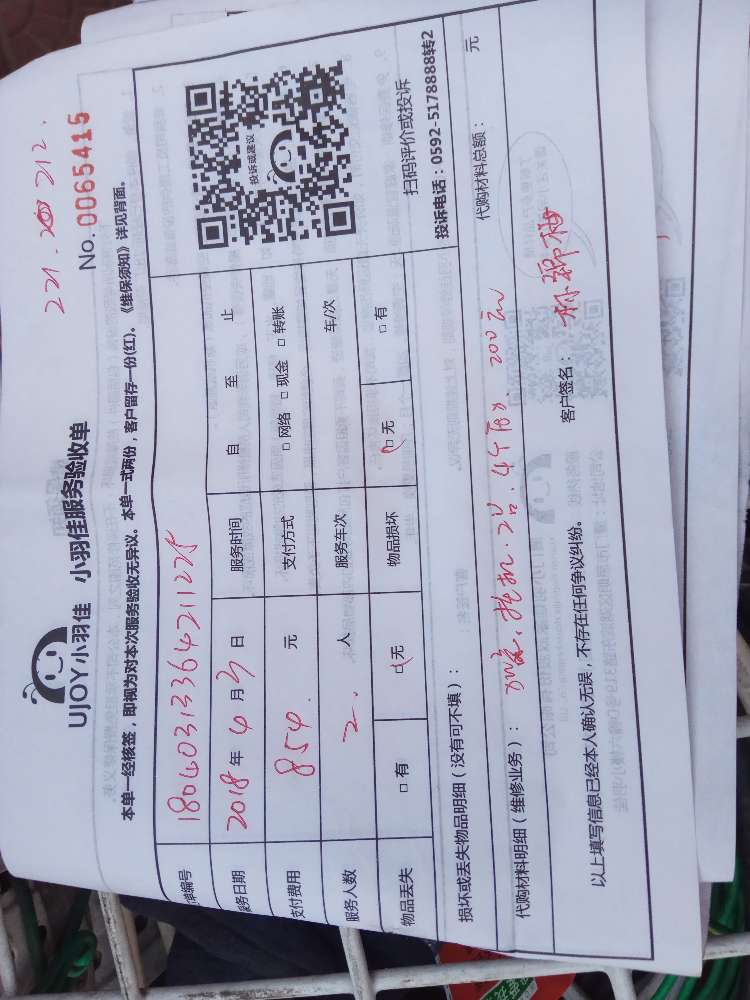 221. 212.
UJOY小羽佳 小羽佳服务验收单
No. 0065415
本单一经核签，即视为对本次服务验收无异议。本单一式两份，客户留存一份(红)。《维保须知》详见背面。
单编号 1804031336421225
务日期 2018年4月3日 服务时间 自 至 止
支付费用 854 元 支付方式 □网络 □现金 □转账
服务人数 2. 人 服务车次 车/次
物品丢失 □有 □无 物品损坏 □无 □有
投诉或建议
扫码评价或投诉
投诉电话：0592-5178888转2
损坏或丢失物品明细（没有可不填）：
代购材料明细（维修业务）： 挂机. 2台. 200元 代购材料总额： 元
以上填写信息已经本人确认无误，不存在任何争议纠纷。 客户签名：